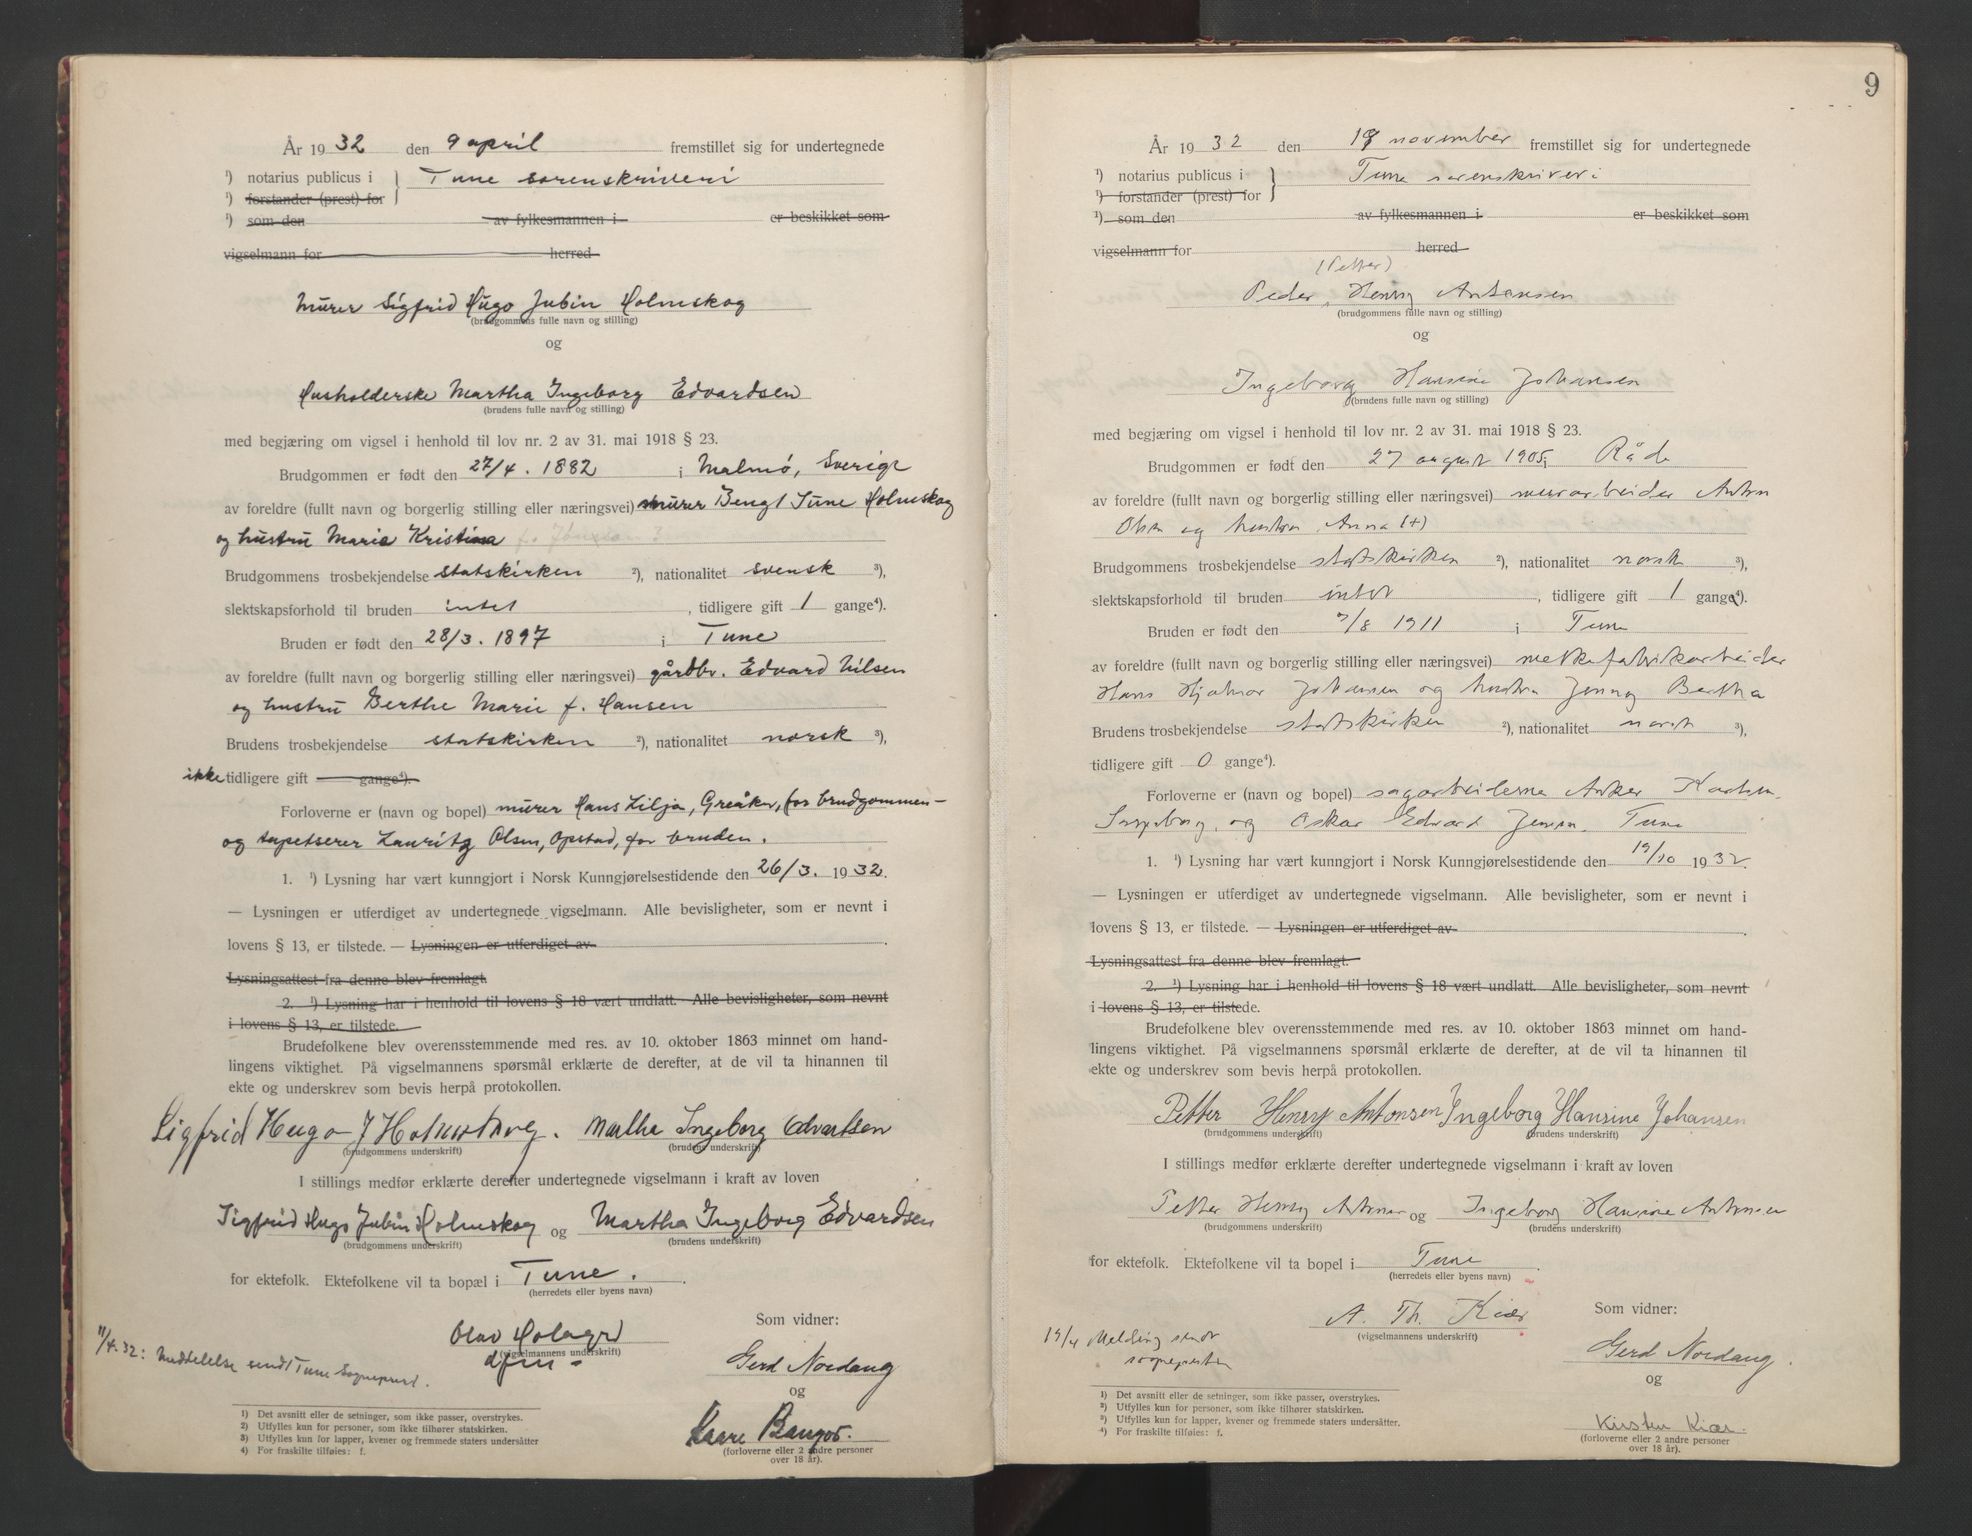 År 1932 den 9 april fremstillet sig for undertegnede
¹) notarius publicus i } Tune sorenskriveri
¹) forstander (prest) for
¹) som den av fylkesmannen i er beskikket som
vigselmann for herred
Murer Sigfrid Hugo Jubin Holmskog
(brudgommens fulle navn og stilling)
og
Husholderske Martha Ingeborg Edvardsen
(brudens fulle navn og stilling)
med begjæring om vigsel i henhold til lov nr. 2 av 31. mai 1918 § 23.
Brudgommen er født den 27/4. 1882 i Malmö, Sverige
av foreldre (fullt navn og borgerlig stilling eller næringsvei) murer Bengt Sune Holmskog
og hustru Marie Kristina
Brudgommens trosbekjendelse statskirken ²), nationalitet svensk ³),
slektskapsforhold til bruden intet, tidligere gift 1 gange⁴).
Bruden er født den 28/3. 1897 i Tune
av foreldre (fullt navn og borgerlig stilling eller næringsvei) gårdbr. Edvard Nilsen
og hustru Berthe Marie f. Hansen
Brudens trosbekjendelse statskirken ²), nationalitet norsk ³),
ikke tidligere gift gange⁴).
Forloverne er (navn og bopel) murer Hans Lilja, Greåker, for brudgommen -
og tapetserer Lauritz Olsen, Opstad, for bruden.
1. ¹) Lysning har vært kunngjort i Norsk Kunngjørelsestidende den 26/3. 1932.
— Lysningen er utferdiget av undertegnede vigselmann. Alle bevisligheter, som er nevnt i
lovens § 13, er tilstede. — Lysningen er utferdiget av
Lysningsattest fra denne blev fremlagt.
2. ¹) Lysning har i henhold til lovens § 18 vært undlatt. Alle bevisligheter, som nevnt
i lovens § 13, er tilstede.
Brudefolkene blev overensstemmende med res. av 10. oktober 1863 minnet om hand-
lingens viktighet. På vigselmannens spørsmål erklærte de derefter, at de vil ta hinannen til
ekte og underskrev som bevis herpå protokollen.
Sigfrid Hugo J Holmskog. Martha Ingeborg Edvartsen
(brudgommens underskrift) (brudens underskrift)
I stillings medfør erklærte derefter undertegnede vigselmann i kraft av loven
Sigfrid Hugo Jubin Holmskog og Martha Ingeborg Edvardsen
(brudgommens underskrift) (brudens underskrift)
for ektefolk. Ektefolkene vil ta bopæl i Tune.
(herredets eller byens navn)
Som vidner:
(vigselmannens underskrift)
11/4.32: Meddelelse sendt Tune Sogneprest.
Gerd Nordang
og
Kaare Bangor.
(forloverne eller 2 andre personer
over 18 år).
¹) Det avsnitt eller de setninger, som ikke passer, overstrykes.
²) Utfylles kun for personer, som ikke tilhører statskirken.
³) Utfylles kun for lapper, kvener og fremmede staters undersåtter
⁴) For fraskilte tilføies: f.
9
År 1932 den november fremstillet sig for undertegnede
¹) notarius publicus i } Tune sorenskriveri
¹) forstander (prest) for
¹) som den av fylkesmannen i er beskikket som
vigselmann for herred
(Petter)
Peder Henry Antonsen
(brudgommens fulle navn og stilling)
og
Ingeborg Hansine Johansen
(brudens fulle navn og stilling)
med begjæring om vigsel i henhold til lov nr. 2 av 31. mai 1918 § 23.
Brudgommen er født den 27 august 1905 i Råde
av foreldre (fullt navn og borgerlig stilling eller næringsvei) Anton
Olsen og hustru Anna (+)
Brudgommens trosbekjendelse statskirken ²), nationalitet norsk ³),
slektskapsforhold til bruden intet, tidligere gift 1 gange⁴).
Bruden er født den 7/8 1911 i Tune
av foreldre (fullt navn og borgerlig stilling eller næringsvei)
Hans Hjalmar Johansen og hustru Jenny Bertha
Brudens trosbekjendelse statskirken ²), nationalitet norsk ³),
tidligere gift 0 gange⁴).
Forloverne er (navn og bopel) sagarbeiderne Anker Karlsen,
Sarpsborg, og Oskar Edvard Jensen, Tune
1. ¹) Lysning har vært kunngjort i Norsk Kunngjørelsestidende den 19/10 1932.
— Lysningen er utferdiget av undertegnede vigselmann. Alle bevisligheter, som er nevnt i
lovens § 13, er tilstede. — Lysningen er utferdiget av
Lysningsattest fra denne blev fremlagt.
2. ¹) Lysning har i henhold til lovens § 18 vært undlatt. Alle bevisligheter, som nevnt
i lovens § 13, er tilstede.
Brudefolkene blev overensstemmende med res. av 10. oktober 1863 minnet om hand-
lingens viktighet. På vigselmannens spørsmål erklærte de derefter, at de vil ta hinannen til
ekte og underskrev som bevis herpå protokollen.
Petter Henry Antonsen Ingeborg Hansine Johansen
(brudgommens underskrift) (brudens underskrift)
I stillings medfør erklærte derefter undertegnede vigselmann i kraft av loven
Petter Henry Antonsen og Ingeborg Hansine Antonsen
(brudgommens underskrift) (brudens underskrift)
for ektefolk. Ektefolkene vil ta bopel i Tune
(herredets eller byens navn)
A. Th. Kiær
(vigselmannens underskrift)
Melding sendt
sognepresten
Som vidner:
Gerd Nordang.
og
Kirsten Kiær.
(forloverne eller 2 andre personer
over 18 år).
¹) Det avsnitt eller de setninger, som ikke passer, overstrykes.
²) Utfylles kun for personer, som ikke tilhører statskirken.
³) Utfylles kun for lapper, kvener og fremmede staters undersåtter.
⁴) For fraskilte tilføies: f.